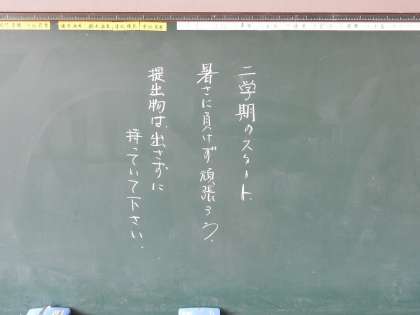 二学期のスタート.
暑さに負けず頑張ろう.
提出物は、出さずに
持っていて下さい.